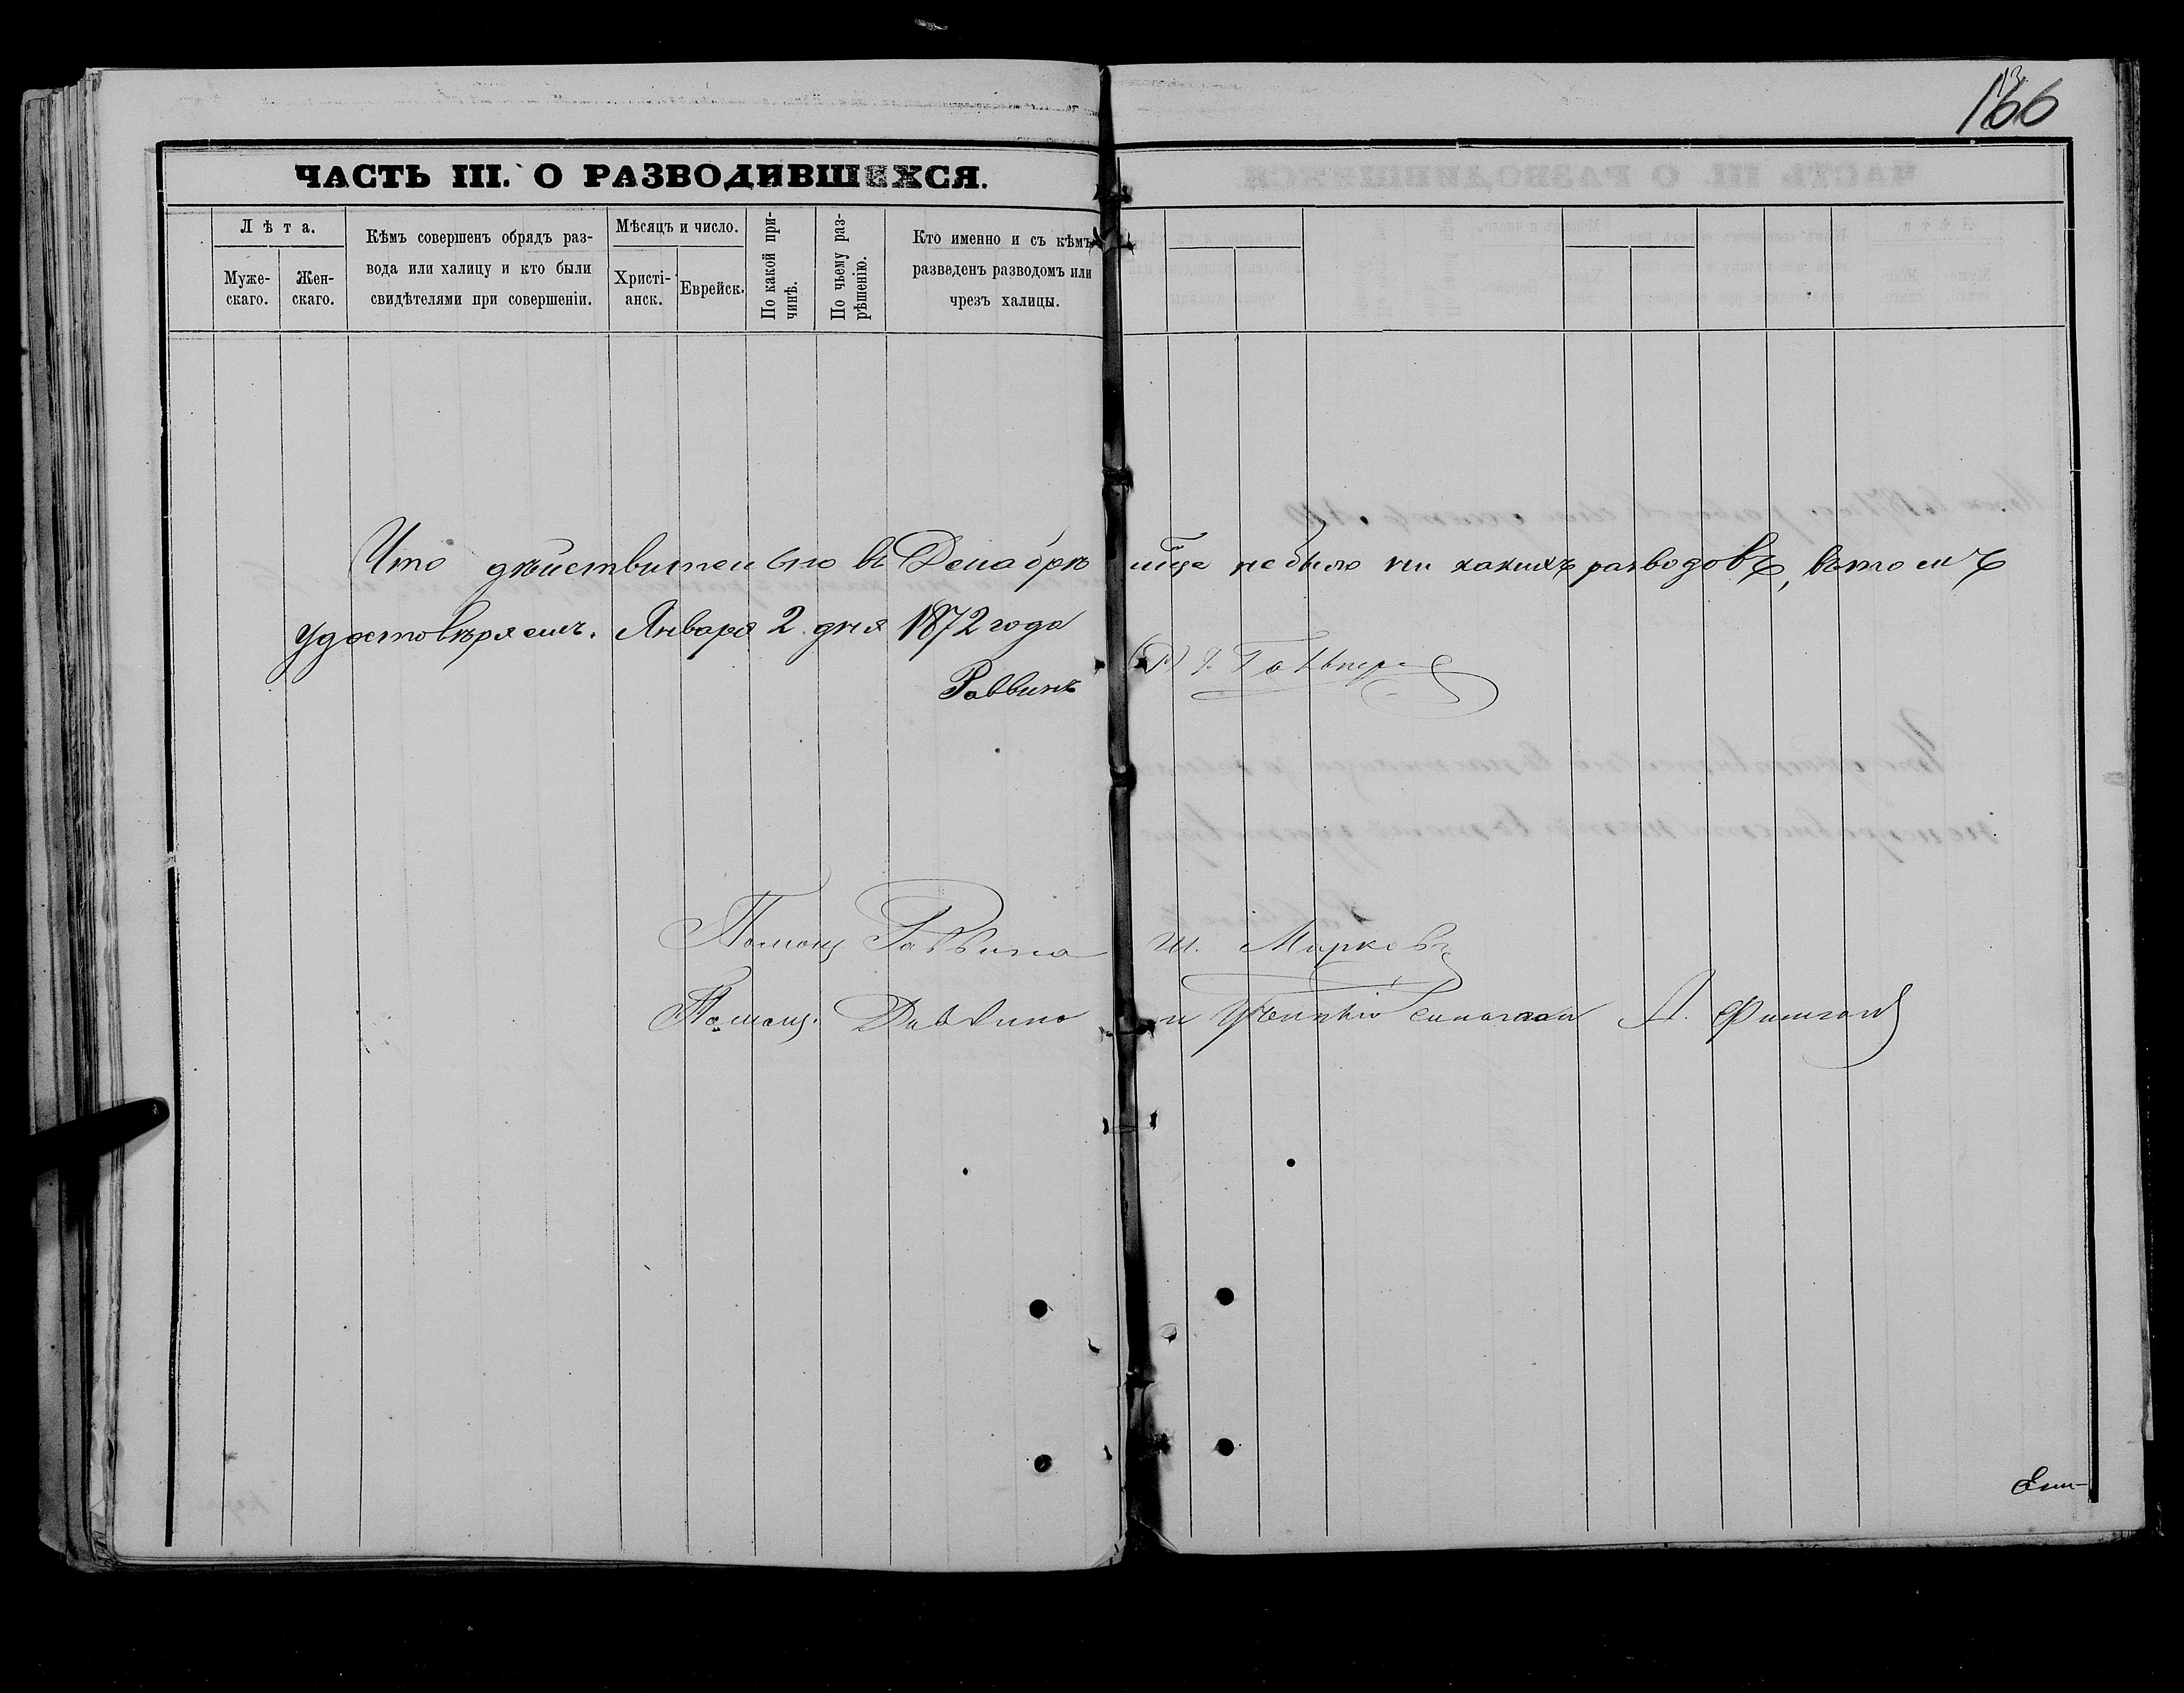 166
ЧАСТЬ III. О РАЗВОДИВШИХСЯ.
Лѣта.
Муже-
скаго.
Жен-
скаго.
Кѣмъ совершенъ обрядъ раз-
вода или халицу и кто были
свидѣтелями при совершеніи.
Мѣсяцъ и число.
Христі-
анск.
Еврейск.
По какой при-
чинѣ.
По чьему раз-
рѣшенію.
Кто именно и съ кѣмъ
разведенъ разводомъ или
чрезъ халицы.
Что дѣйствительно въ Декабрѣ м-це не было ни какихъ разводовъ, въ томъ
удостовѣряемъ. Января 2 дня 1872 года
Раввинъ
Помощ Раввина Ш. Марковъ
Помощ. Раввина и